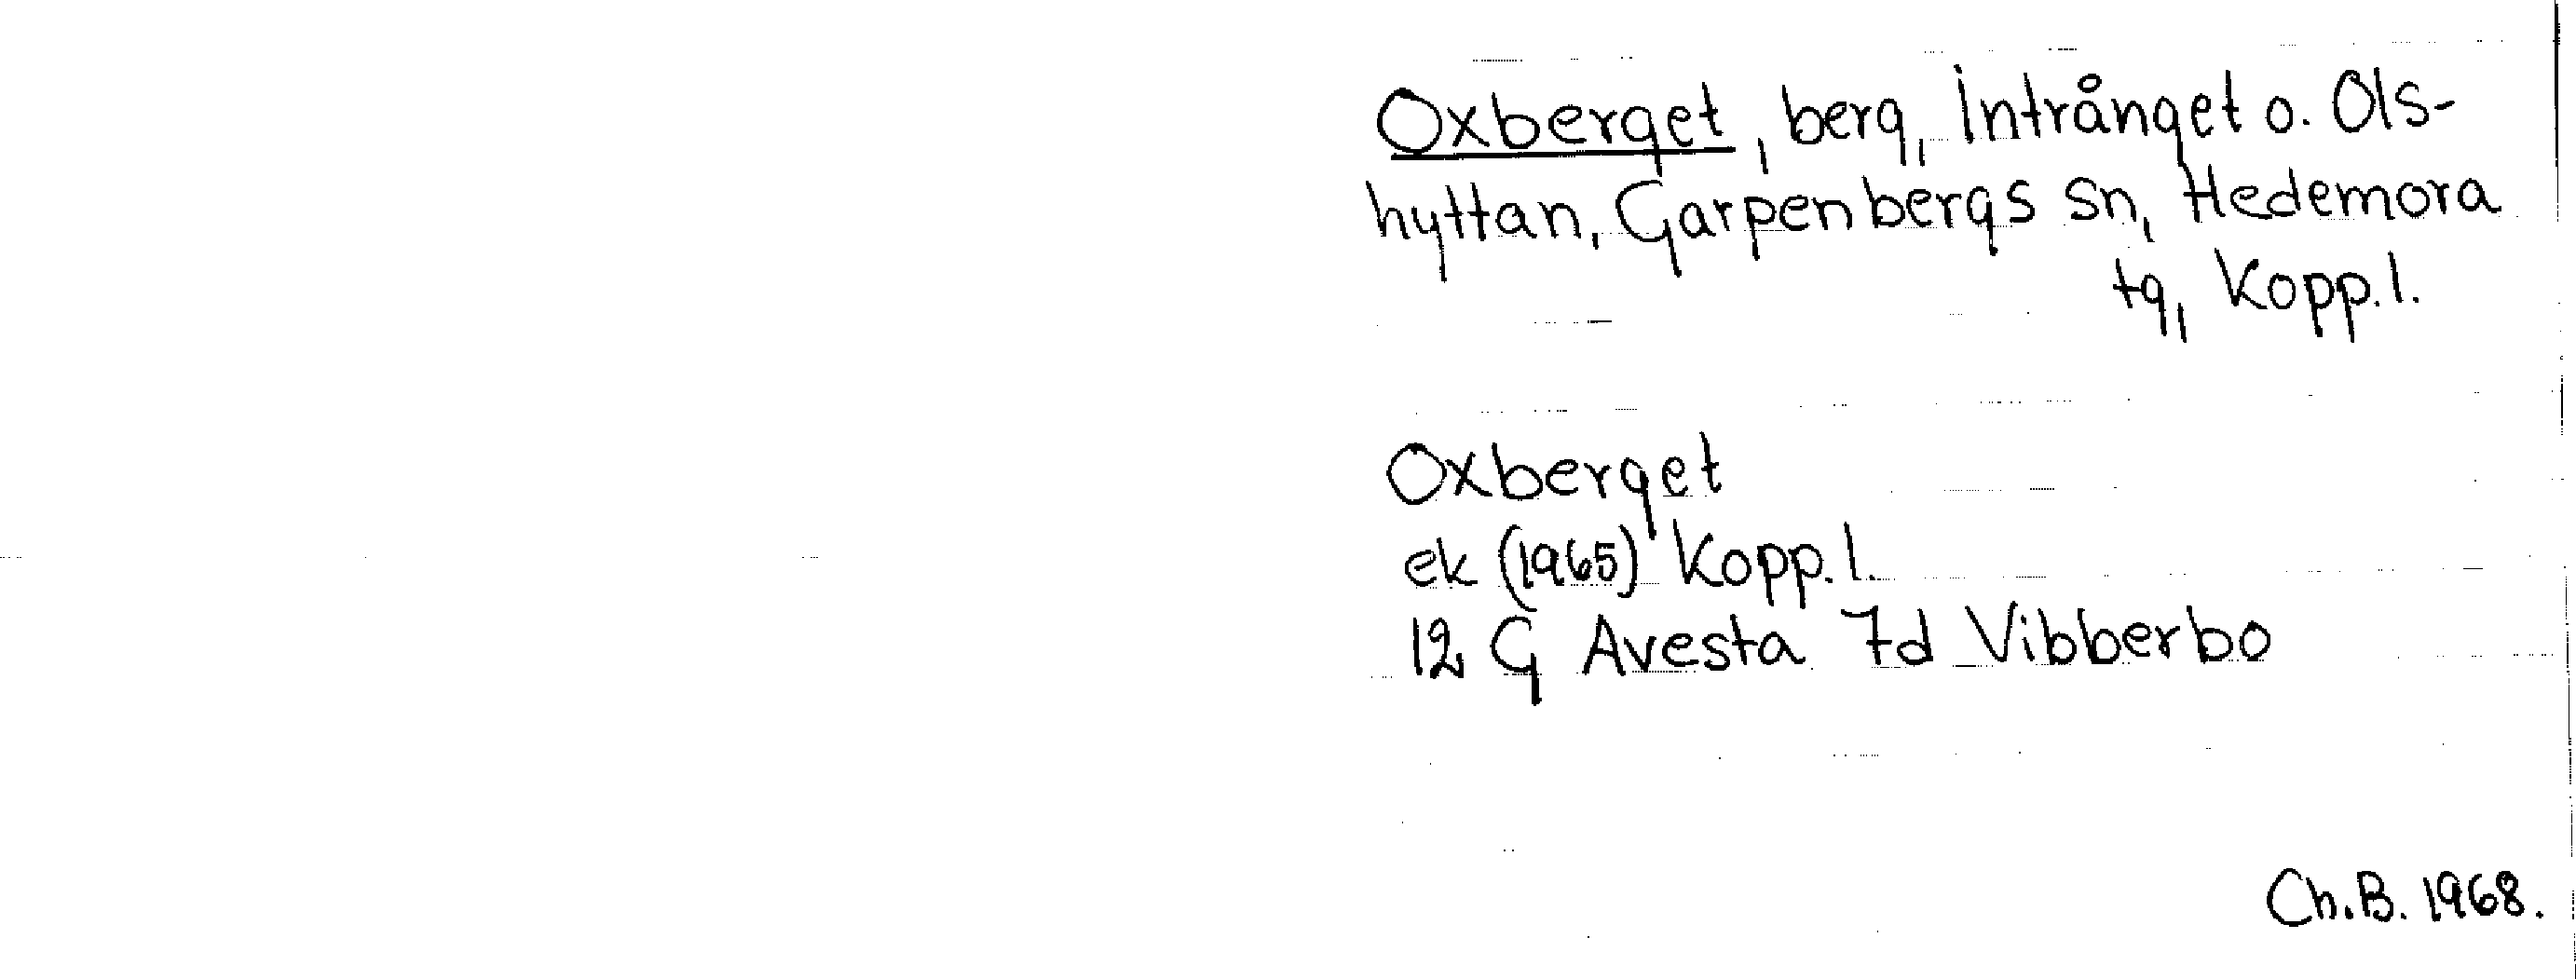 Oxberget, berg, Intrånget o. Ols-
hyttan, Garpenbergs sn, Hedemora
tg, Kopp.l.
Oxberget
ek (1965) Kopp.l.
12 G Avesta 7d Vibberbo
Ch.B. 1968.